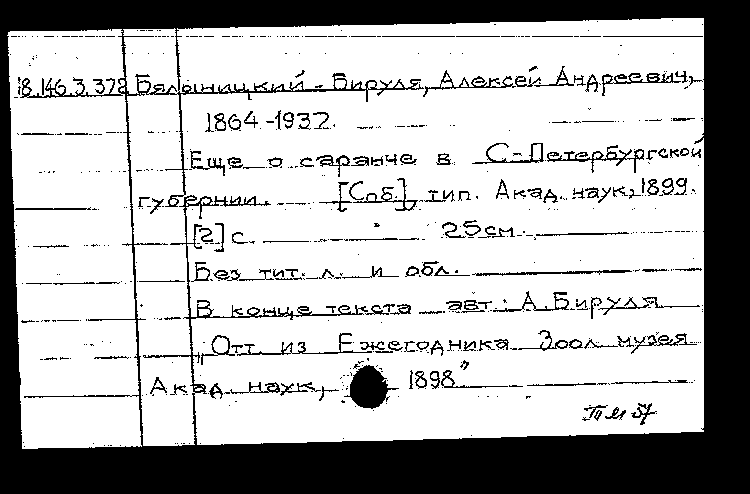 18.146.3.372 Бялыницкий-Бируля, Алексей Андреевич,
1864-1937.
Еще о саранче в С-Петербургской
губернии. [Спб], тип. Акад. наук, 1899.
[2] с. 25 см.
Без тит. л. и обл.
В конце текста авт: А. Бируля
„Отт. из Ежегодника Зоол. музея
Акад. наук, 1898"